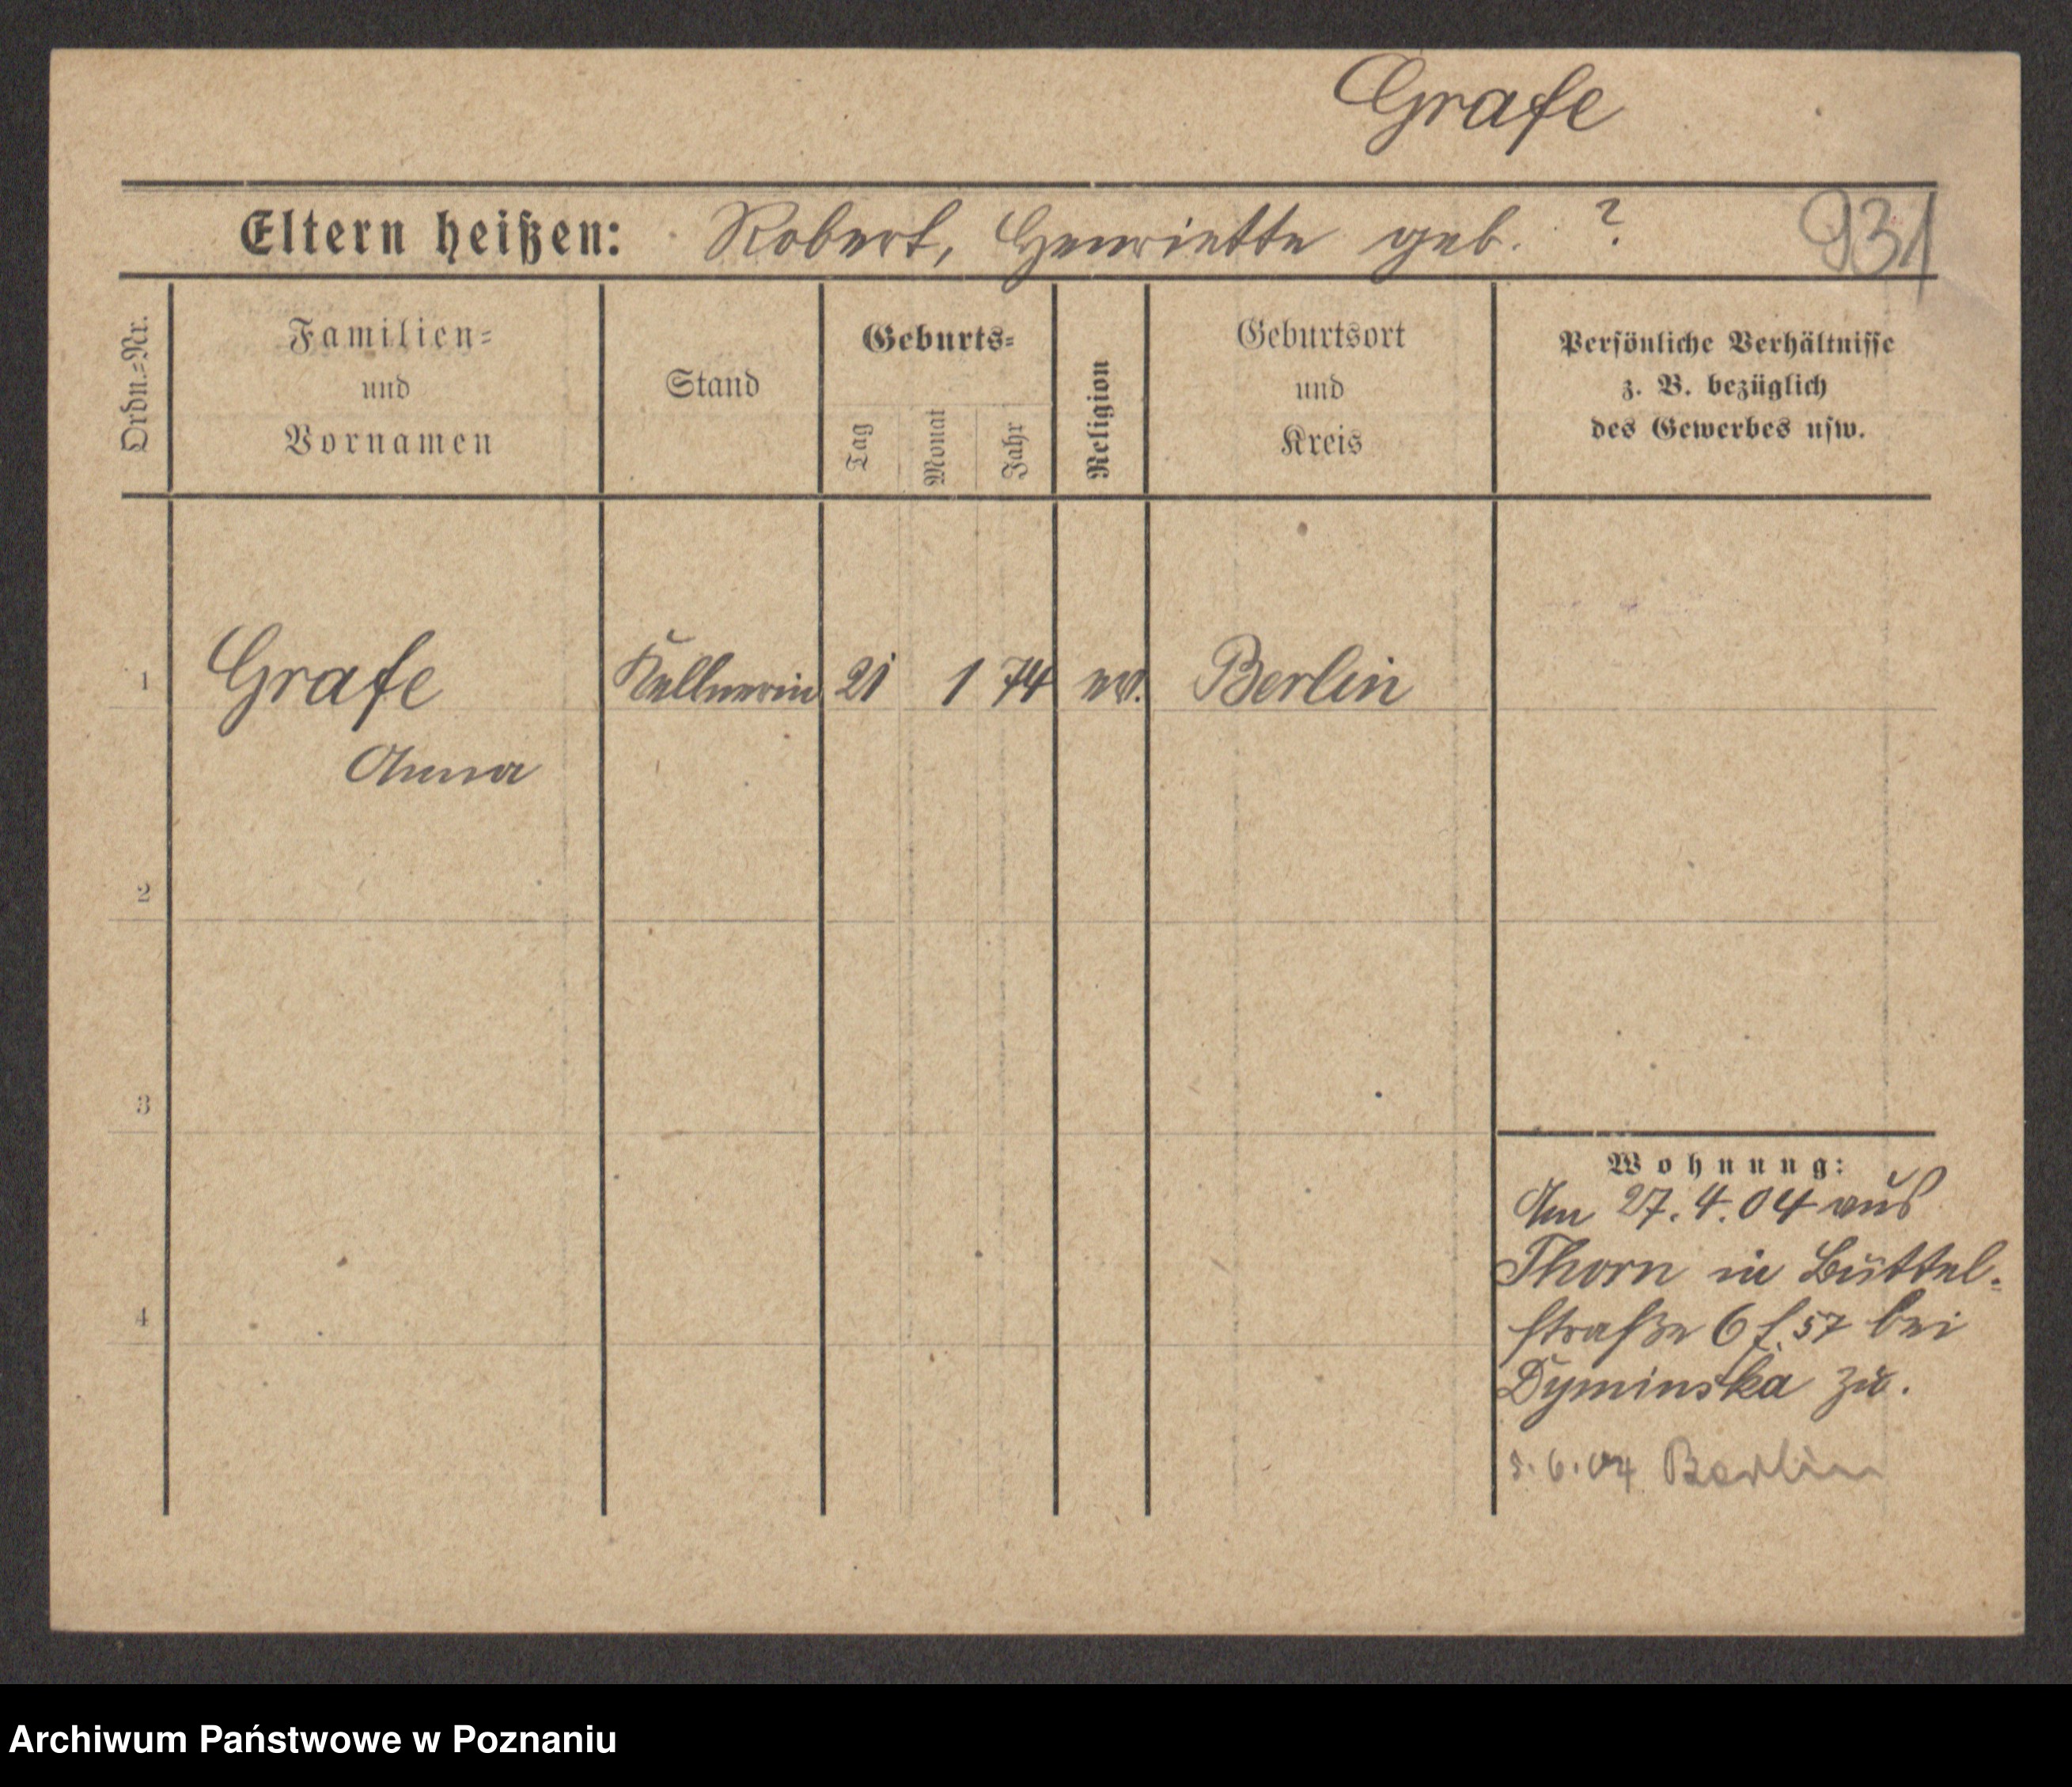 Grafe
Eltern heißen: Robert, Henriette geb. ?
931
Ordn.=Nr.
Familien=
und
Vornamen
Stand
Geburts=
Tag
Monat
Jahr
Religion
Geburtsort
und
Kreis
Persönliche Verhältnisse
z. B. bezüglich
des Gewerbes usw.
1 Grafe Kellnerin 21 1 74 ev. Berlin
Anna
2
3
4
Wohnung:
Am 27.4.04 aus
Thorn in Büttel-
straße 6 b. 57 bei
Dyminska zu.
5.6.04 Berlin
Archiwum Państwowe w Poznaniu